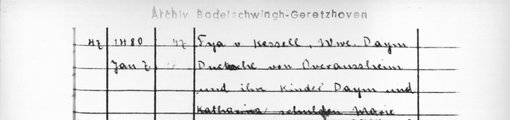 Archiv Bodelschwingh-Geretzhoven
47 1480 47 Fya v. Kessell, Wwe. Daym
Jan 7 von Overaussheim
und ihre Kinder Daym und
Katharina Marie